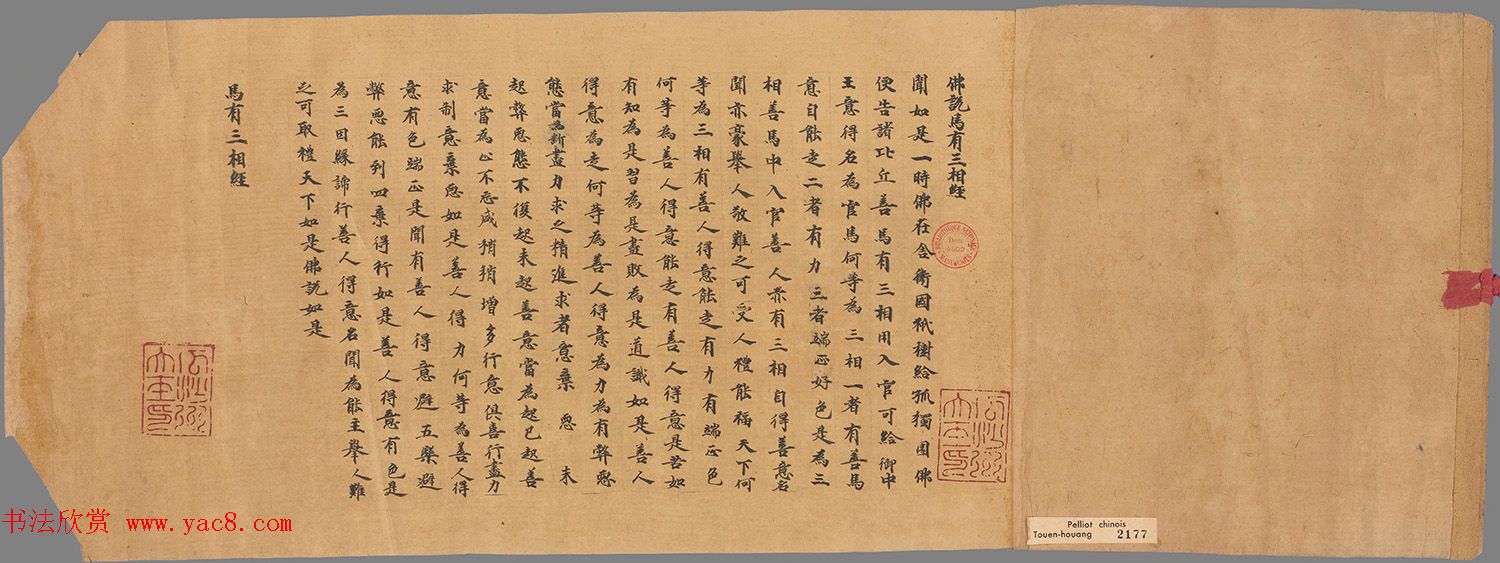 佛說馬有三相經
聞如是一時佛在舍衛國祇樹給孤獨園佛
便告諸比丘善馬有三相用入官可給御中
王意得名為官馬何等為三相一者有善馬
意自能走二者有力三者端正好色是為三
相善馬中入官善人亦有三相自得善意名
聞亦豪舉人敬難之可受人禮能福天下何
等為三相有善人得意能走有力有端正色
何等為善人得意能走有善人得意是苦如
有知為是習為是盡敗為是道識如是善人
得意為走何等為善人得意為力為有弊惡
態當為斷盡力求之精進求者意棄惡未
起弊惡態不復起未起善意當為起已起善
意當為止不忘咸稍稍增多行意俱喜行盡力
求制意棄惡如是善人得力何等為善人得
意有色端正是聞有善人得意避五樂避
弊惡能到四棄得行如是善人得意有色是
為三因緣諦行善人得意名聞為能主舉人難
之可取禮天下如是佛說如是
馬有三相經
瓜沙州大王印
瓜沙州大王印
Don
4502
Pelliot chinois
Touen-houang 2177
书法欣赏 www.yac8.com